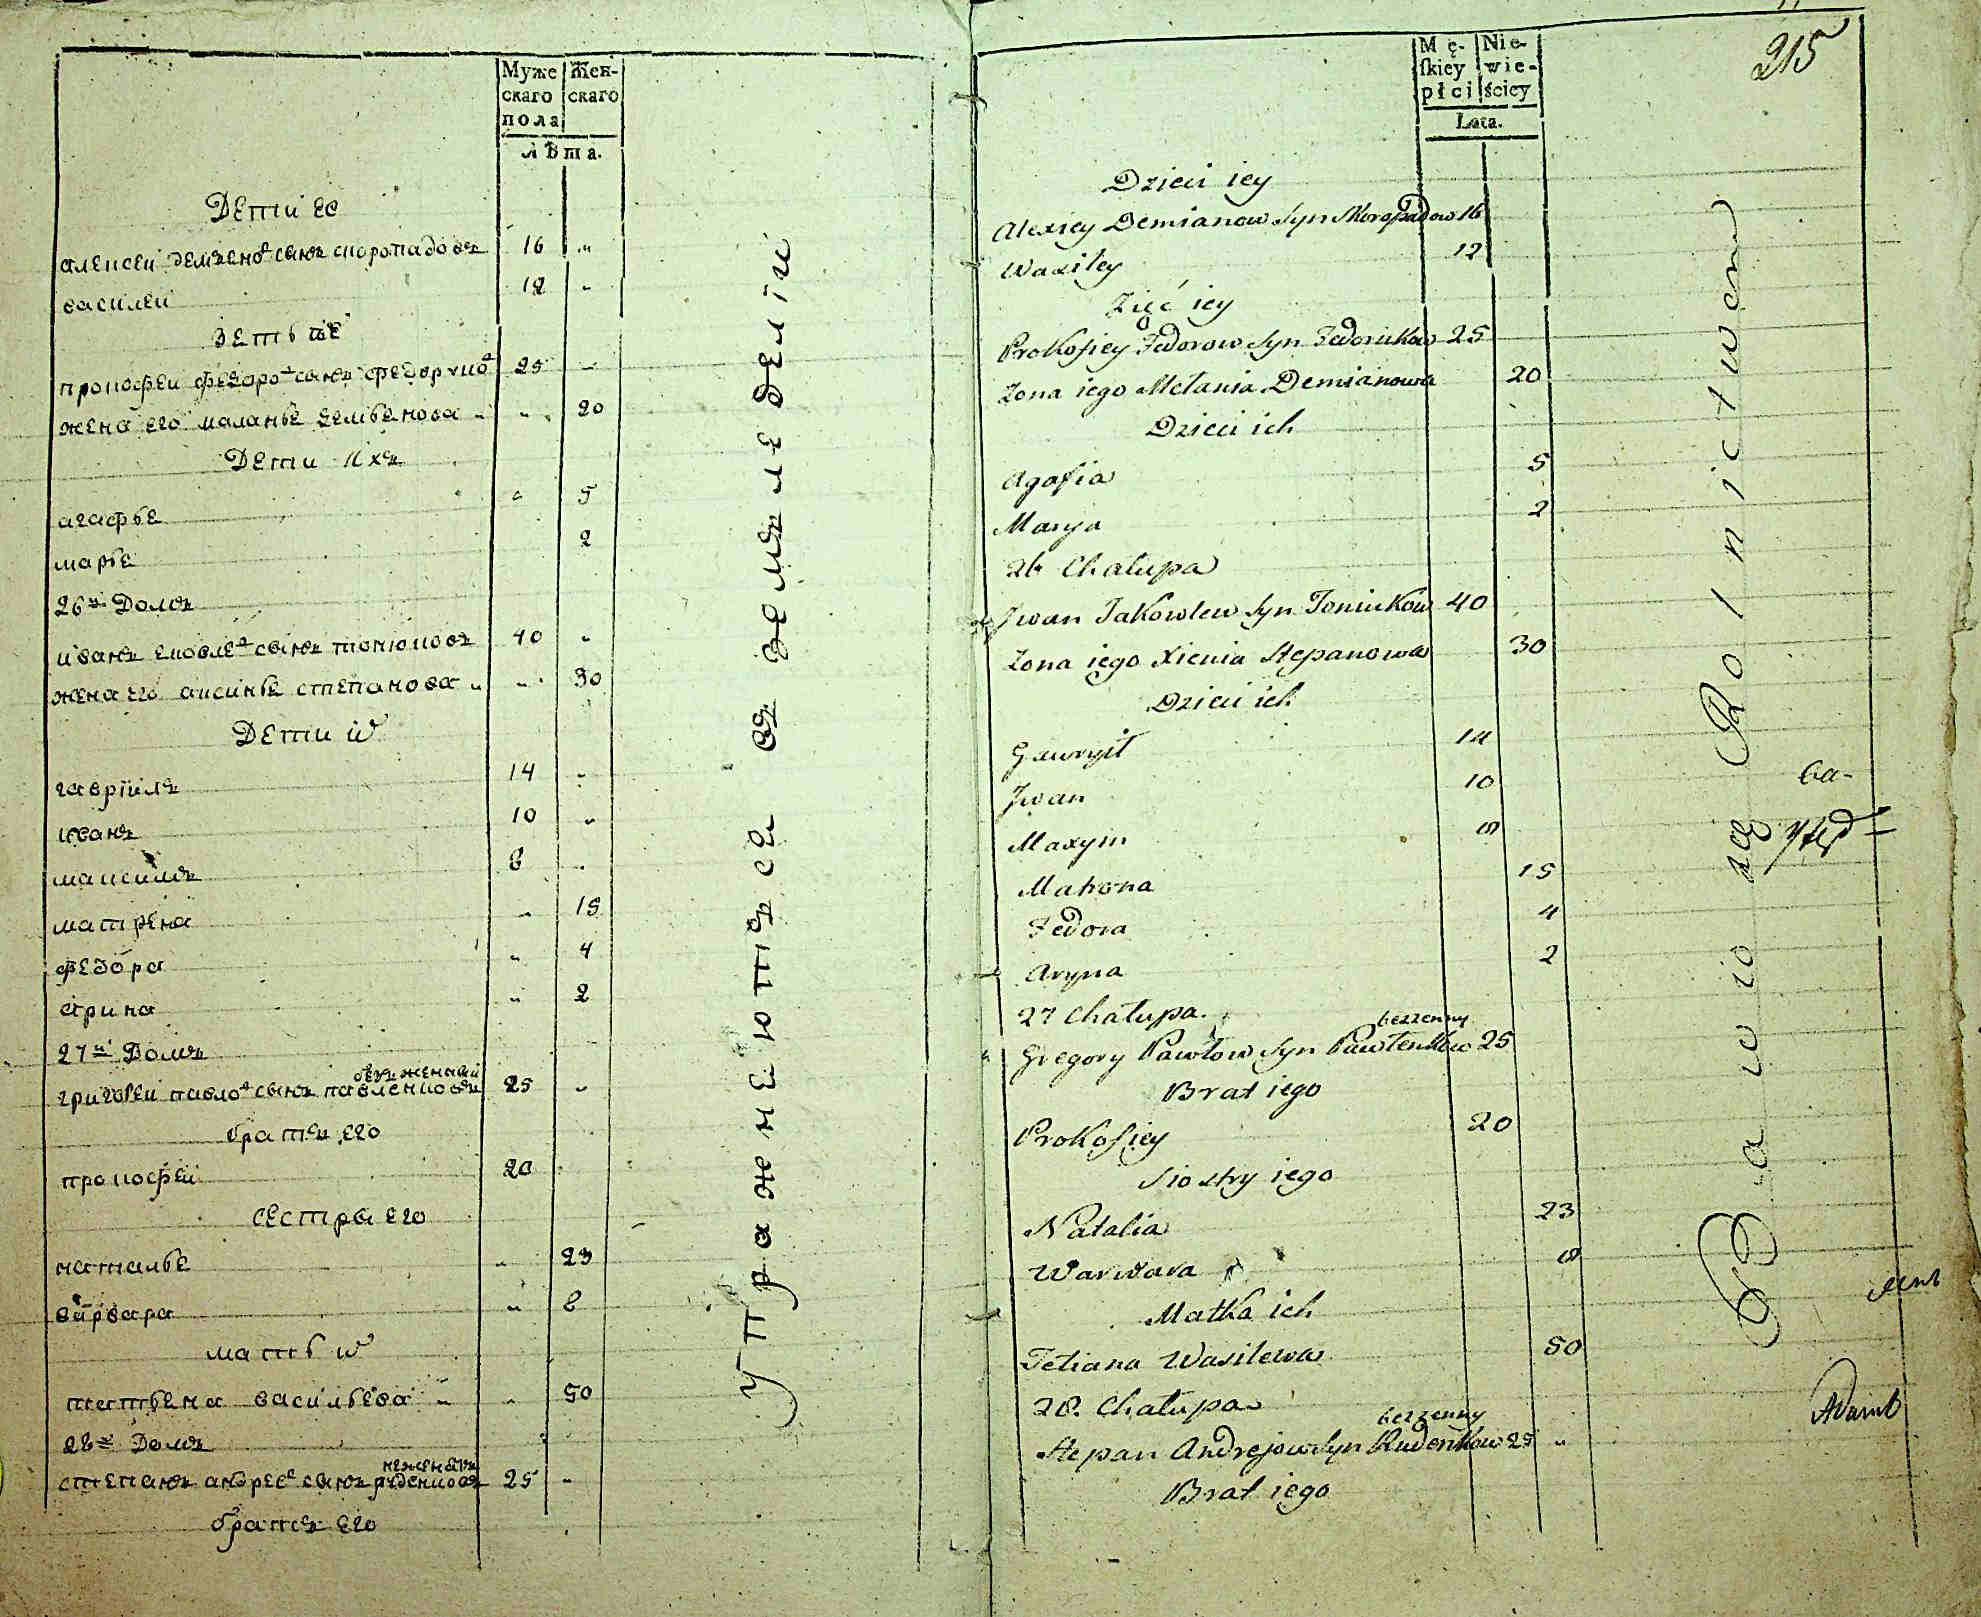 Муже Жен-
скаго скаго
пола
лѣта.
Дети ее
алексеи демьено^в сынъ скоропадовъ 16 "
василеи 12 "
зеть ее
прокофеи федоро^в сынъ федорчко^в 25 "
жена его маланье демьенова " " 20
Дети ихъ
агафье " 5
марье 2
26й Домъ
иванъ ековле^в сынъ тонюковъ 40 "
жена его аксинье степанова " " 30
Дети и^х
гавріилъ 14 "
иванъ 10 "
максимъ 8 "
матрена " 15
федора " 4
арина " 2
27й Домъ
безженный
григореи павло^в сынъ павленковъ 25 "
братъ его
прокофеи 20
сестры его
наталье " 23
варвара " 8
мать и^х
татьена васильева " " 50
28й Домъ
неженатъ
степанъ андрее^в сынъ руденковъ 25 "
братъ его
упражнеютъсе въ земледелги
215
Mę- Nie-
ſkiey wie-
płci ściey
Lata.
Dzieci iey
Alexiey Demianow Syn Skoropadow 16
Wasiley 12
Zięć iey
Prokofiey Fedorow Syn Fedorukow 25
Zona iego Melania Demianowa 20
Dzieci ich
Agafia 5
Marya 2
26 Chałupa
Jwan Jakowlew Syn Toniukow 40
Zona iego Xienia Stepanowa 30
Dzieci ich
Gawryił 14
Jwan 10
Maxym 8
Matrona 15
Fedora 4
Aryna 2
27 Chałupa
bezzenny
Gregory Pawłow Syn Pawłenkow 25
Brat iego
Prokofiey 20
Siostry iego
Natalia 23
Warwara 8
Matka ich
Tetiana Wasilewa 50
28. Chałupa
bezzenny
Stepan Andrejow Syn Rudenkow 25 "
Brat iego
Bawio się Rolnictwem